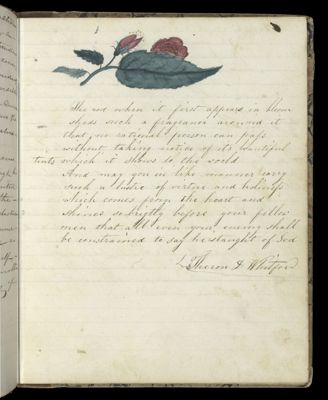 The rose when it first appears in bloom
sheds such a fragrance around it
that no rational person can pass
without taking notice of its beautiful
tents which it shows to the world
And may you in like manner carry
such a lustre of vertue and
which comes from the heart and
shines so brightly before your fellow
men that all even your enemy shall
be constrained to say he is taught of God
Theron